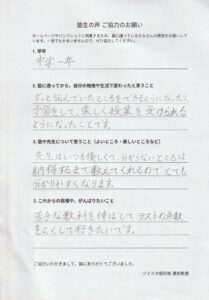 塾生の声 ご協力のお願い
ホームページやパンフレットに掲載するため、塾に通っているみなさんの感想をお願いして
います。一言でもかまいませんので、ぜひ協力してください。
1. 学年
中学一年
2. 塾に通ってから、自分の勉強や生活で変わったと思うこと
ずっと悩んでいたところをできるようになったり、
予習をして、楽しく授業を受けられる
ようになったことです。
3. 塾や先生について思うこと(よいところ・楽しいところなど)
先生はいつも優しくて、分からないところは
納得するまで教えてくれるのでとても
分かりやすくなります。
4. これからの目標や、がんばりたいこと
苦手な教科を伸ばしてテストの点数
をよくして行きたいです。
ご協力いただきまして、誠にありがとうございました。